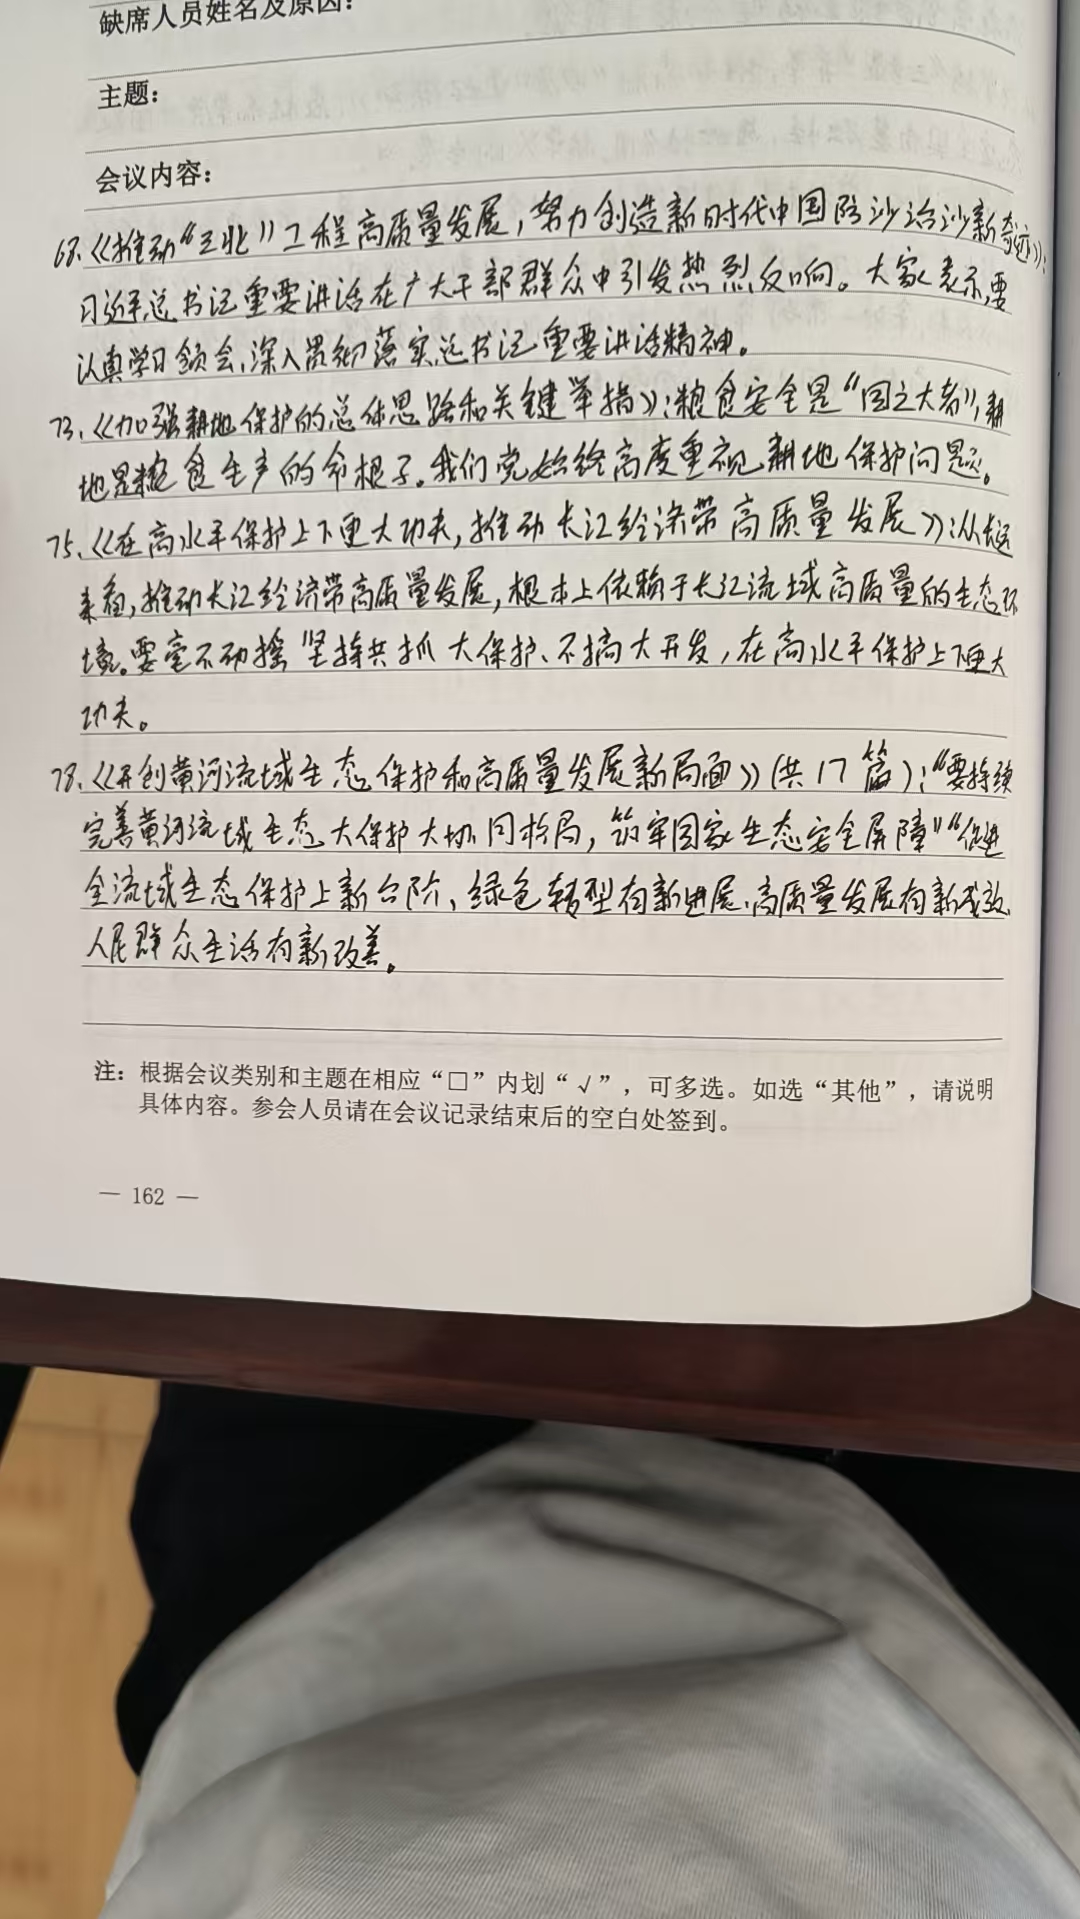 缺席人员姓名及原因：
主题：
会议内容：
68、《推动“三北”工程高质量发展，努力创造新时代中国防沙治沙新奇迹》：
习近平总书记重要讲话在广大干部群众中引发热烈反响。大家表示，要
认真学习领会，深入贯彻落实总书记重要讲话精神。
73、《加强耕地保护的总体思路和关键举措》：粮食安全是“国之大者”，耕
地是粮食生产的命根子。我们党始终高度重视耕地保护问题。
75、《在高水平保护上下更大功夫，推动长江经济带高质量发展》：从长远
来看，推动长江经济带高质量发展，根本上依赖于长江流域高质量的生态环
境。要毫不动摇坚持共抓大保护、不搞大开发，在高水平保护上下更大
功夫。
78、《开创黄河流域生态保护和高质量发展新局面》（共17篇）：“要持续
完善黄河流域生态大保护大协同格局，筑牢国家生态安全屏障”“促进
全流域生态保护上新台阶、绿色转型有新进展、高质量发展有新成效、
人民群众生活有新改善。
注：根据会议类别和主题在相应“□”内划“√”，可多选。如选“其他”，请说明
具体内容。参会人员请在会议记录结束后的空白处签到。
— 162 —